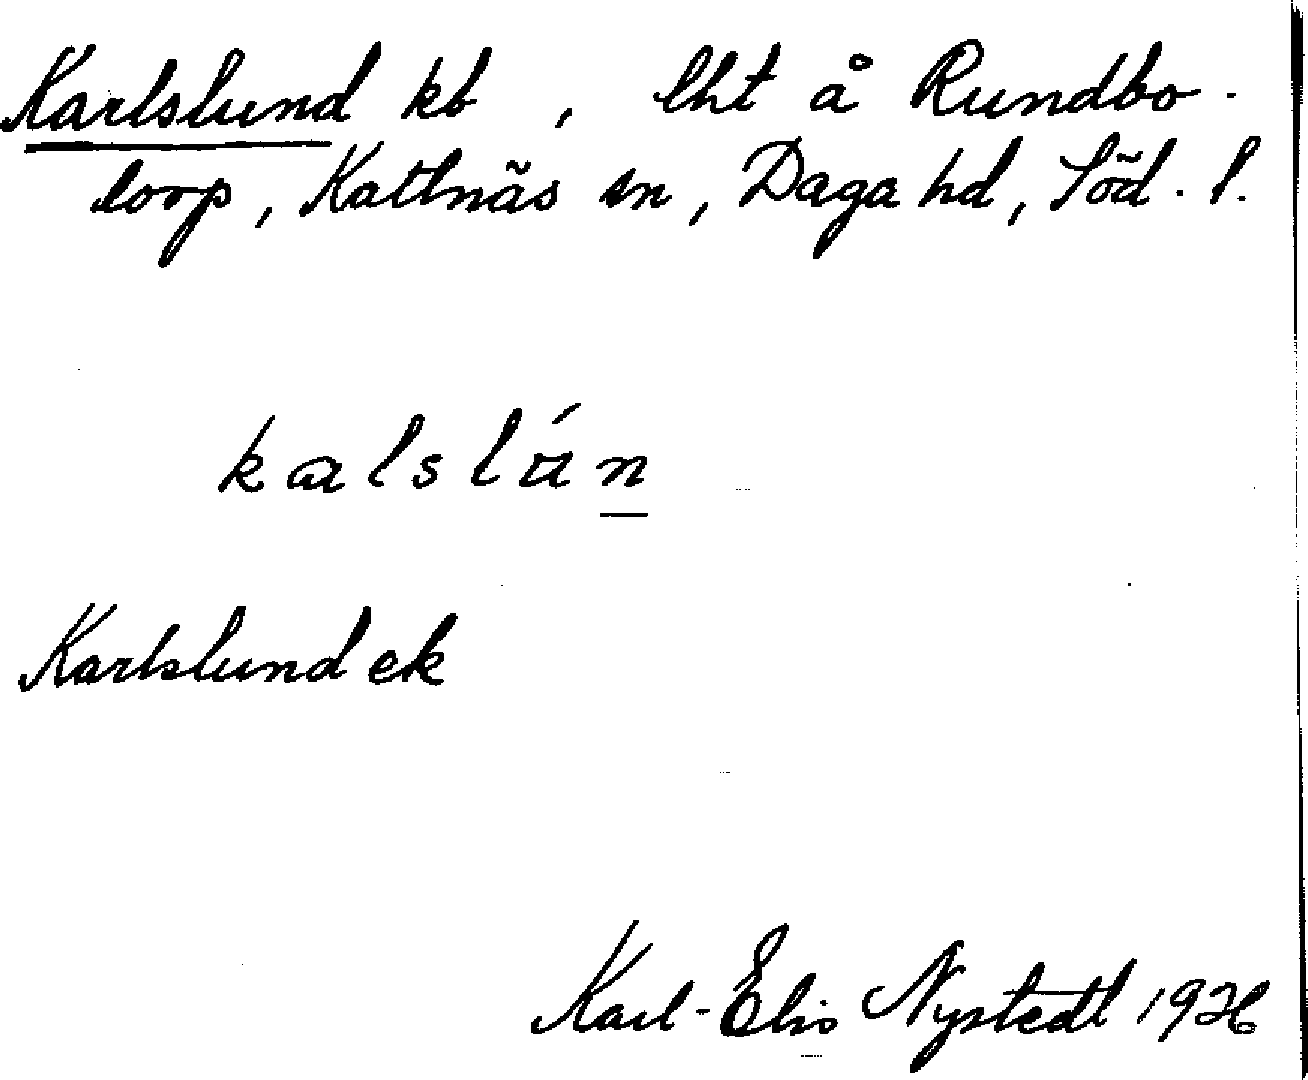 Karlslund kb, lht å Rundbo-
torp, Kattnäs sn, Daga hd, Söd. l.
kalslún
Karlslund ek
Karl-Elis Nystedt 1926